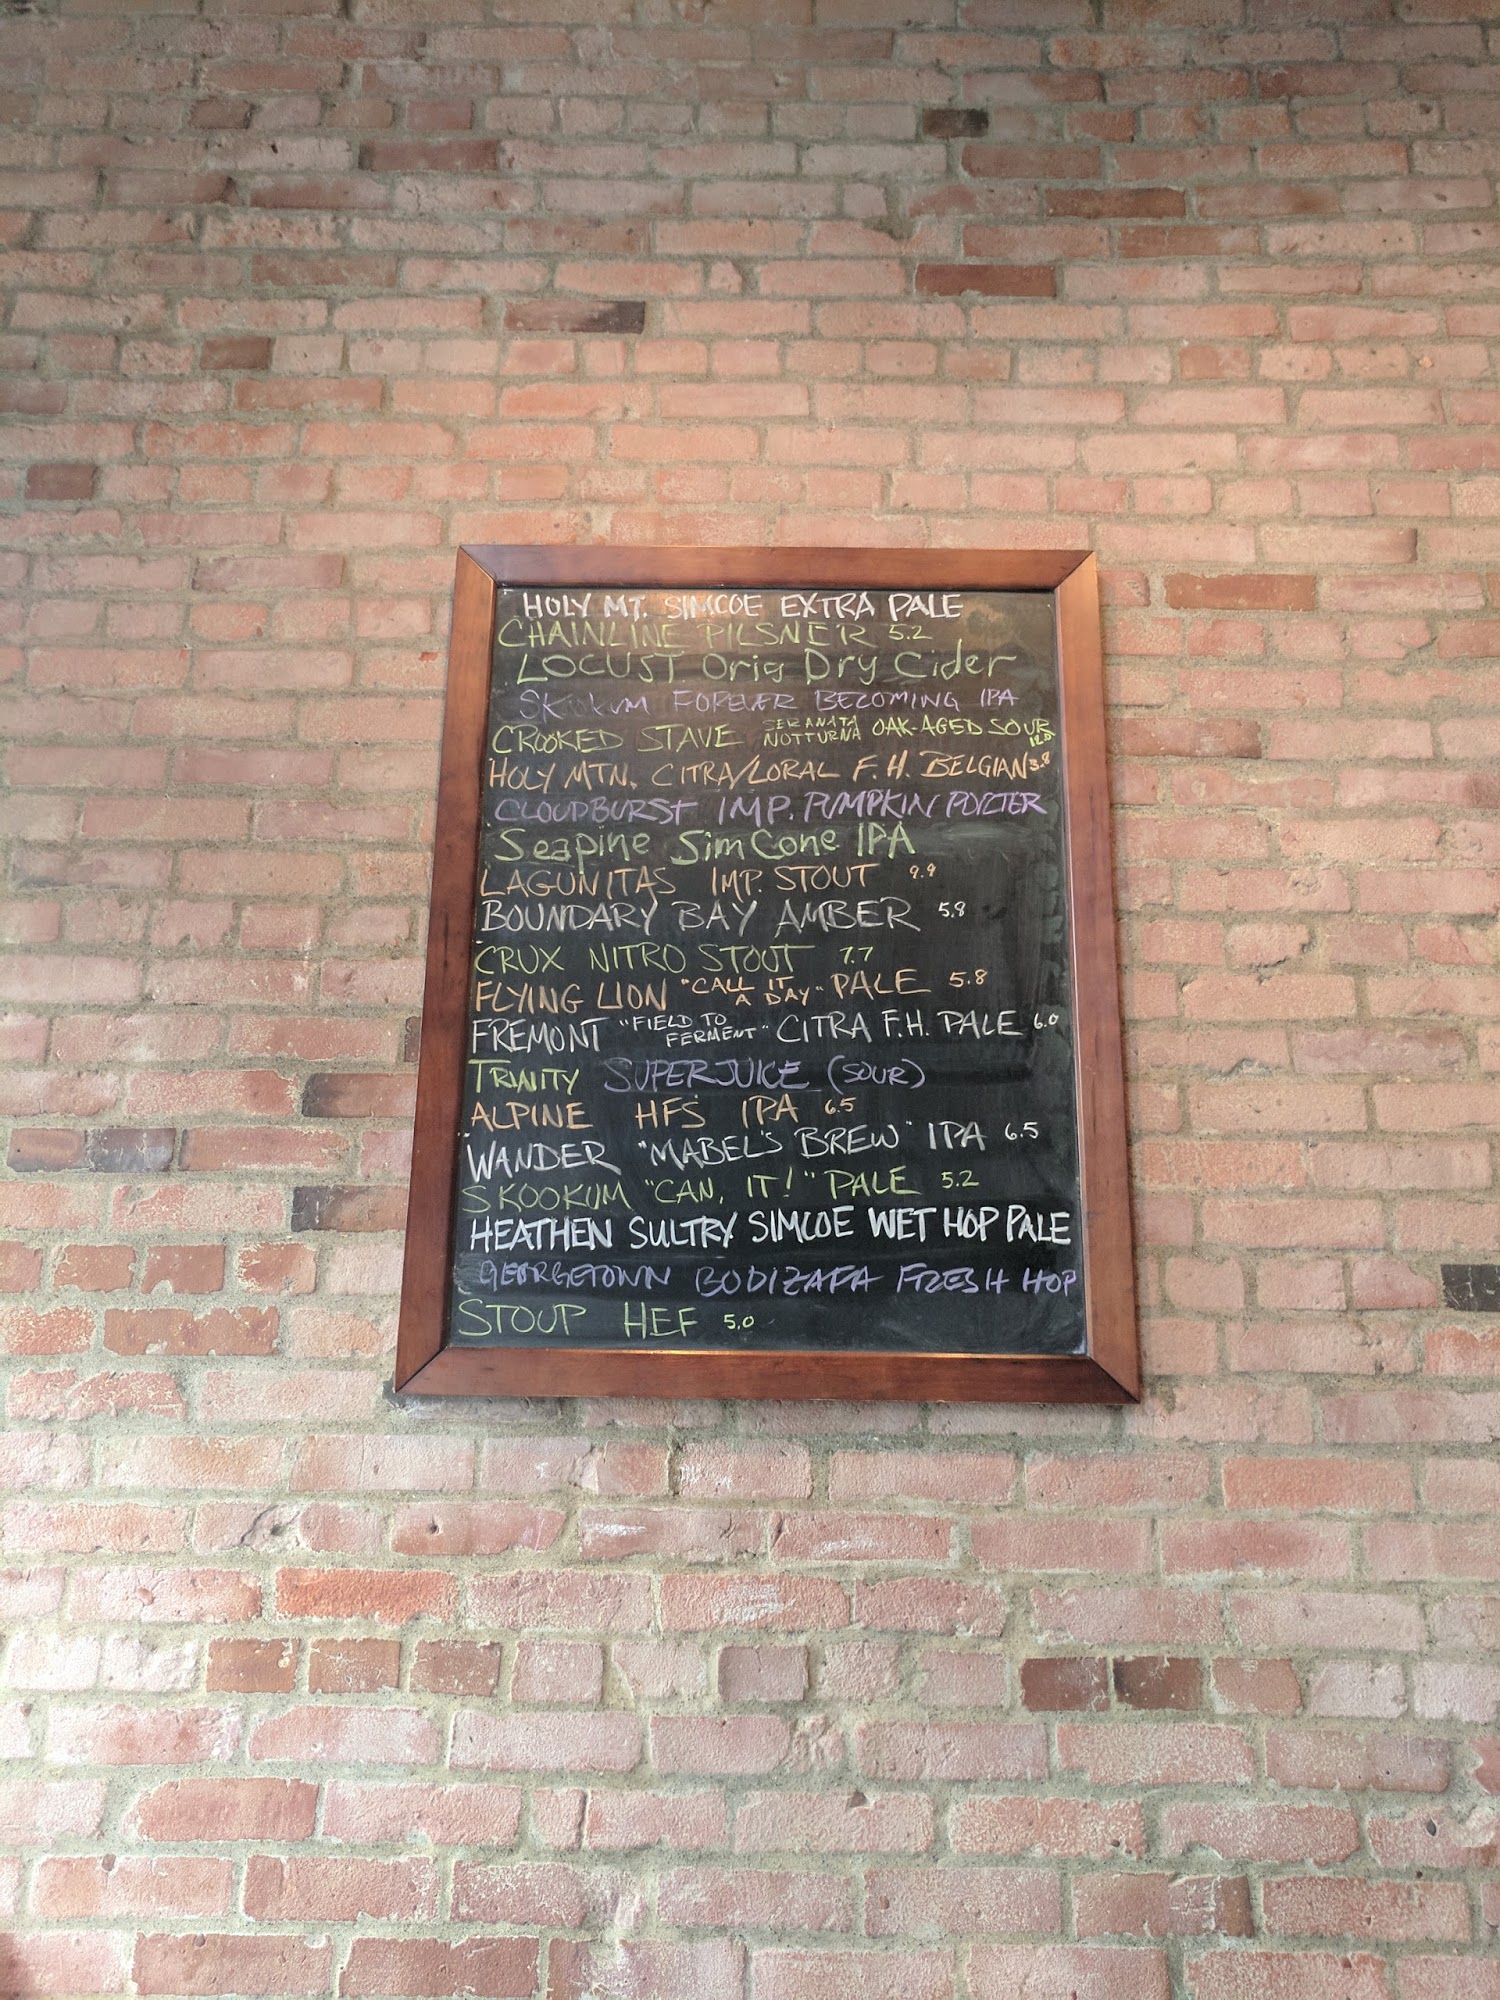 HOLY MT. SIMCOE EXTRA PALE
CHAINLINE PILSNER 5.2
LOCUST Orig Dry Cider
SKOOKUM FOREVER BECOMING IPA
CROOKED STAVE SERANATA NOTTURNA OAK-AGED SOUR 12.0
HOLY MTN. CITRA/LORAL F.H. BELGIAN 3.8
CLOUDBURST IMP. PUMPKIN PORTER
Seapine SimCone IPA
LAGUNITAS IMP. STOUT 9.9
BOUNDARY BAY AMBER 5.8
CRUX NITRO STOUT 7.7
FLYING LION "CALL IT A DAY" PALE 5.8
FREMONT "FIELD TO FERMENT" CITRA F.H. PALE 6.0
TRINITY SUPERJUICE (SOUR)
ALPINE HFS IPA 6.5
WANDER "MABEL'S BREW" IPA 6.5
SKOOKUM "CAN, IT!" PALE 5.2
HEATHEN SULTRY SIMCOE WET HOP PALE
GEORGETOWN BODIZAFA FRESH HOP
STOUP HEF 5.0